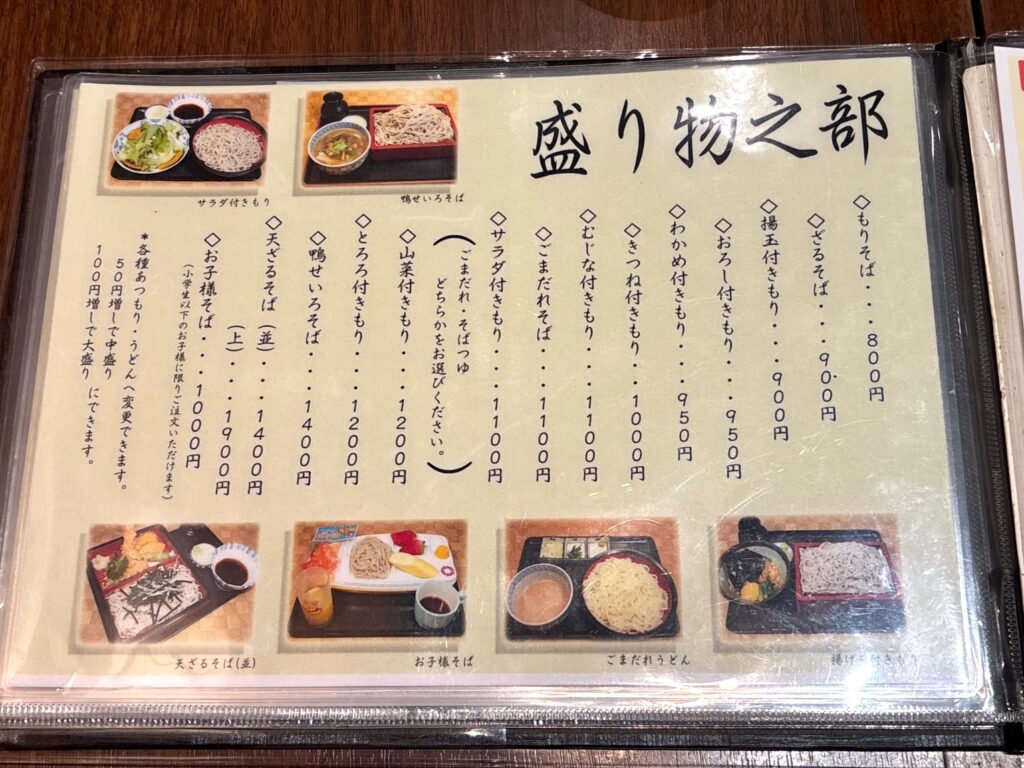 盛り物之部
◇もりそば・・・800円
◇ざるそば・・・900円
◇揚玉付きもり・・・900円
◇おろし付きもり・・・950円
◇わかめ付きもり・・・950円
◇きつね付きもり・・・1000円
◇むじな付きもり・・・1100円
◇ごまだれそば・・・1100円
◇サラダ付きもり・・・1100円
(ごまだれ・そばつゆ
どちらかをお選びください。)
◇山菜付きもり・・・1200円
◇とろろ付きもり・・・1200円
◇鴨せいろそば・・・1400円
◇天ざるそば(並)・・・1400円
(上)・・・1900円
◇お子様そば・・・1000円
(小学生以下のお子様に限りご注文いただけます)
*各種あつもり・うどんへ変更できます。
50円増しで中盛り
100円増しで大盛り にできます。
サラダ付きもり
鴨せいろそば
天ざるそば(並)
お子様そば
ごまだれうどん
揚げ玉付きもり